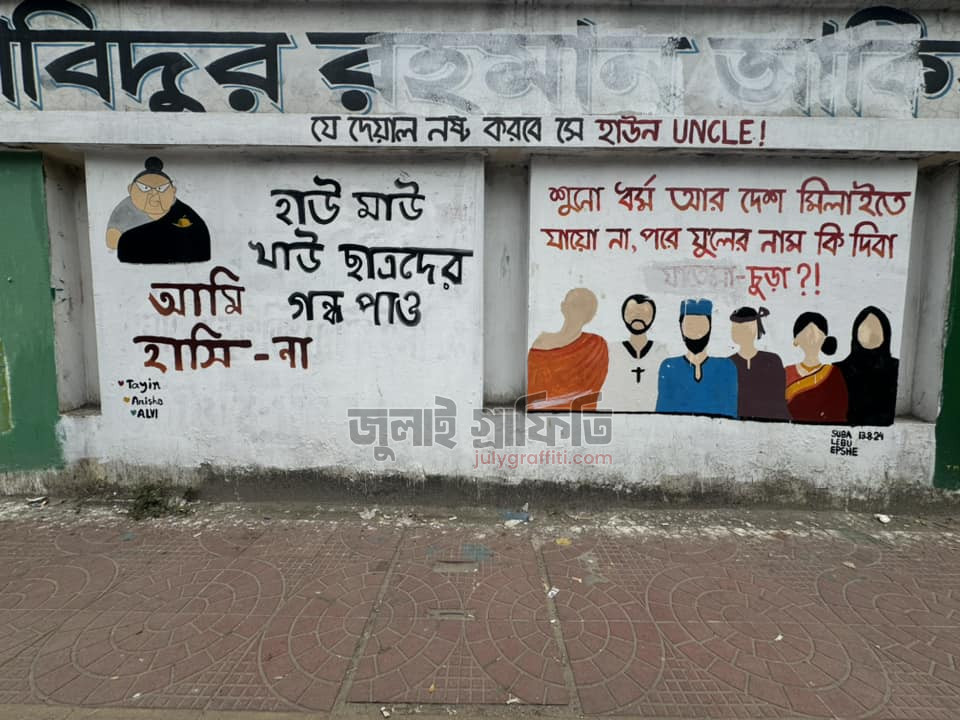 বিদুর রহমান জাকি
যে দেয়াল নষ্ট করবে সে হাউন UNCLE!
হাউ মাউ
খাউ ছাত্রদের
গন্ধ পাও
আমি
হাসি-না
Tayin
Anisha
ALVI
শুনো ধর্ম আর দেশ মিলাইতে
যায়ো না, পরে ফুলের নাম কি দিবা
ফাতেমা-চুড়া?!
SUBA 13.8.24
LEBU
EPSHE
জুলাই গ্রাফিতি
julygraffiti.com